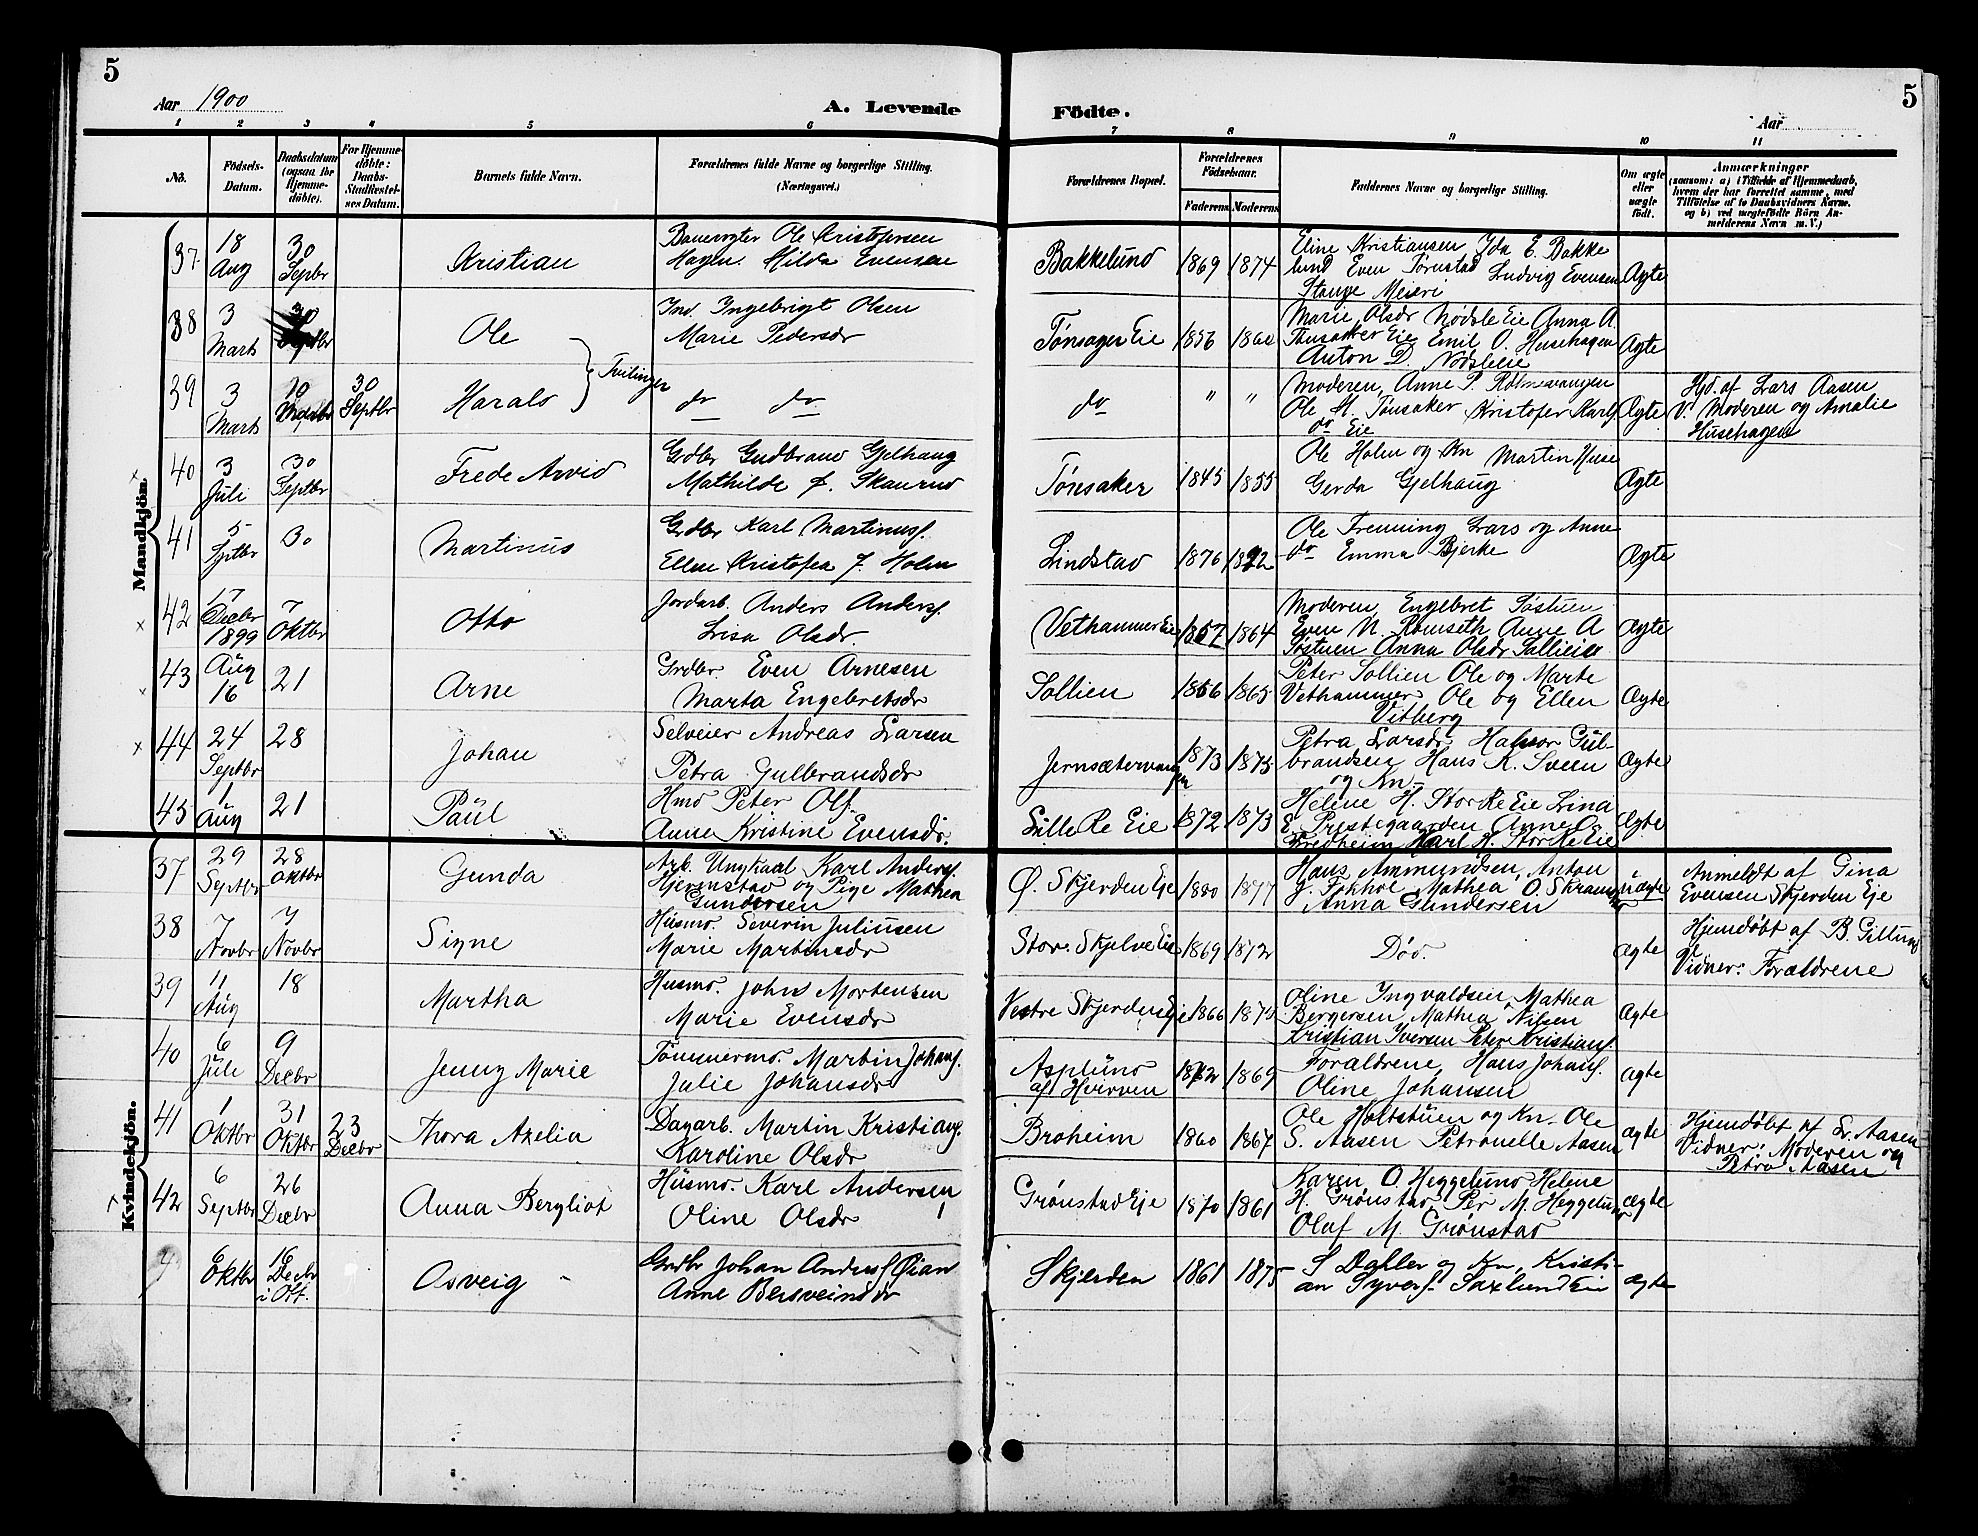 5
5
Aar 1900
A. Levende
Födte.
Aar
1 2 3 4 5 6 7 8 9 10 11
No.
Födsels-Datum.
Daabsdatum (ogsaa for Hjemme-döbte).
For Hjemme-döbte: Daabs-Stadfæstel-ses Datum.
Barnets fulde Navn.
Forældrenes fulde Navne og borgerlige Stilling. (Næringsvei.)
Forældrenes Bopæl.
Forældrenes Födselsaar.
Faderens Moderens
Faddernes Navne og borgerlige Stilling.
Om ægte eller uægte födt.
Anmærkninger
(saasom: a) i Tilfælde af Hjemmedaab, hvem der har forrettet samme, med Tilföielse af to Daabsvidners Navne. og b) ved uægtefödte Börn Anmelderens Navn m.V.)
Mandkjön.
37 18 Aug 30 Septbr Kristian Banevogter Ole Kristofersen Hagen. Hilda Evensen Bakkelund 1869 1874 Eline Kristiansen Ida E. Bakkelund Even Tørustad Ludvig Evensen Stange Meieri Ægte
38 3 Marts 30 Septbr Ole Ind. Ingebrigt Olsen Marie Pedersdr Tønsager Eie 1856 1860 Marie Olsdr Nødsle Eie Anna A. Tønsaker Eie Emil O. Husehagen Anton D Nødsleeie Ægte
Tvilinger
39 3 Marts 10 30 Septbr Harald do do do " " Moderen, Anne P. Ole H. Tønsaker Kristofer Karls. do Eie Ægte Hjd. af Lars Aasen V. Moderen og Amalie Husehagen
40 3 Juli 30 Septbr Frede Arvid Grdbr Gudbrand Gjelhaug Mathilde f. Skaurud Tønsaker 1845 1855 Ole Holen og Kn Martin Huse Gerda Gjelhaug Ægte
41 5 Sptbr 30 Martinus Grdbr Karl Martinuss. Ellen Kristofea f. Holen Lindstad 1876 Ole Frenning Lars og Anne do Emma Bjerke Ægte
42 17 Decbr 1899 7 Oktbr Otto Jordarb. Anders Anders. Lisa Olsdr Vethammer Eie 1857 1864 Moderen, Engebret Søstuen Even N. Romseth Anne A Søstuen Anna Olsdr Sollieie Ægte
43 Aug 16 21 Arne Grdbr. Even Arnesen Marta Engebretsdr Sollien 1856 1865 Peter Sollien Ole og Marte Vethammer Ole og Ellen Vitberg Ægte
44 24 Septbr 28 Johan Selveier Andreas Larsen Petra Gulbrandsdr Jernsætervangen 1873 1875 Petra Larsdr Halvor Gulbrandsen Hans K. Sveen og Kn. Ægte
45 1 Aug 21 Paul Hmd Peter Ols. Anne Kristine Evensdr. Lille Re Eie 1872 1873 Helene H. Stor Re Eie Lina E. Prestegaarden Anne O. Fredheim Karl H. Stor Re Eie Ægte
Kvindekjön.
37 29 Septbr 28 Oktbr Gunda Arb. Ungkarl Karl Anders. Hjemstad og Pige Mathea Gundersen Ø. Skjerden Eje 1880 1877 Hans Ammundsen, Anton J. Mathea O. Anna Gundersen uægte Anmeldt af Gina Evensen Skjerden Eje
38 7 Novbr 7 Novbr Signe Husmd. Severin Juliussen Marie Martinsdr Stor-Skjelve Eie 1869 1872 Død. ægte Hjemdøbt af B. Vidner: Forældrene
39 11 Aug 18 Martha Husmd. John Mortensen Marie Evensdr Vestre Skjerden Eje 1866 1870 Oline Ingvaldsen Mathea Bergersen Mathea Nilsen Kristian Iversen Peter Kristians. Ægte
40 6 Juli 9 Decbr Jenny Marie Tømmermd. Martin Johans. Julie Johansdr Asplund af Hverven 1872 1869 Forældrene, Hans Johans. Oline Johansen ægte
41 1 Oktbr 31 Oktbr 23 Decbr Thora Axelia Dagarb. Martin Kristians. Karoline Olsdr Broheim 1860 1867 Ole Holtstuen og Kn. Ole S. Aasen Petronelle Aasen ægte Hjemdøbt af Lr. Aasen Vidner: Moderen og Petra Aasen
42 6 Septbr 26 Decbr Anna Bergliot Husmd. Karl Andersen Oline Olsdr Grønstad Eje 1870 1861 Karen O. Heggelund Helene H. Grønstad, Per M. Heggelund Olaf M. Grønstad ægte
4 6 Oktbr 16 Decbr i Ott. Osveig Grdbr Johan Anders. Øian Anne Bersveinsdr Skjerden 1861 1875 S Dahler og Kn, Kristian Syvers. Saxlund Eie ægte